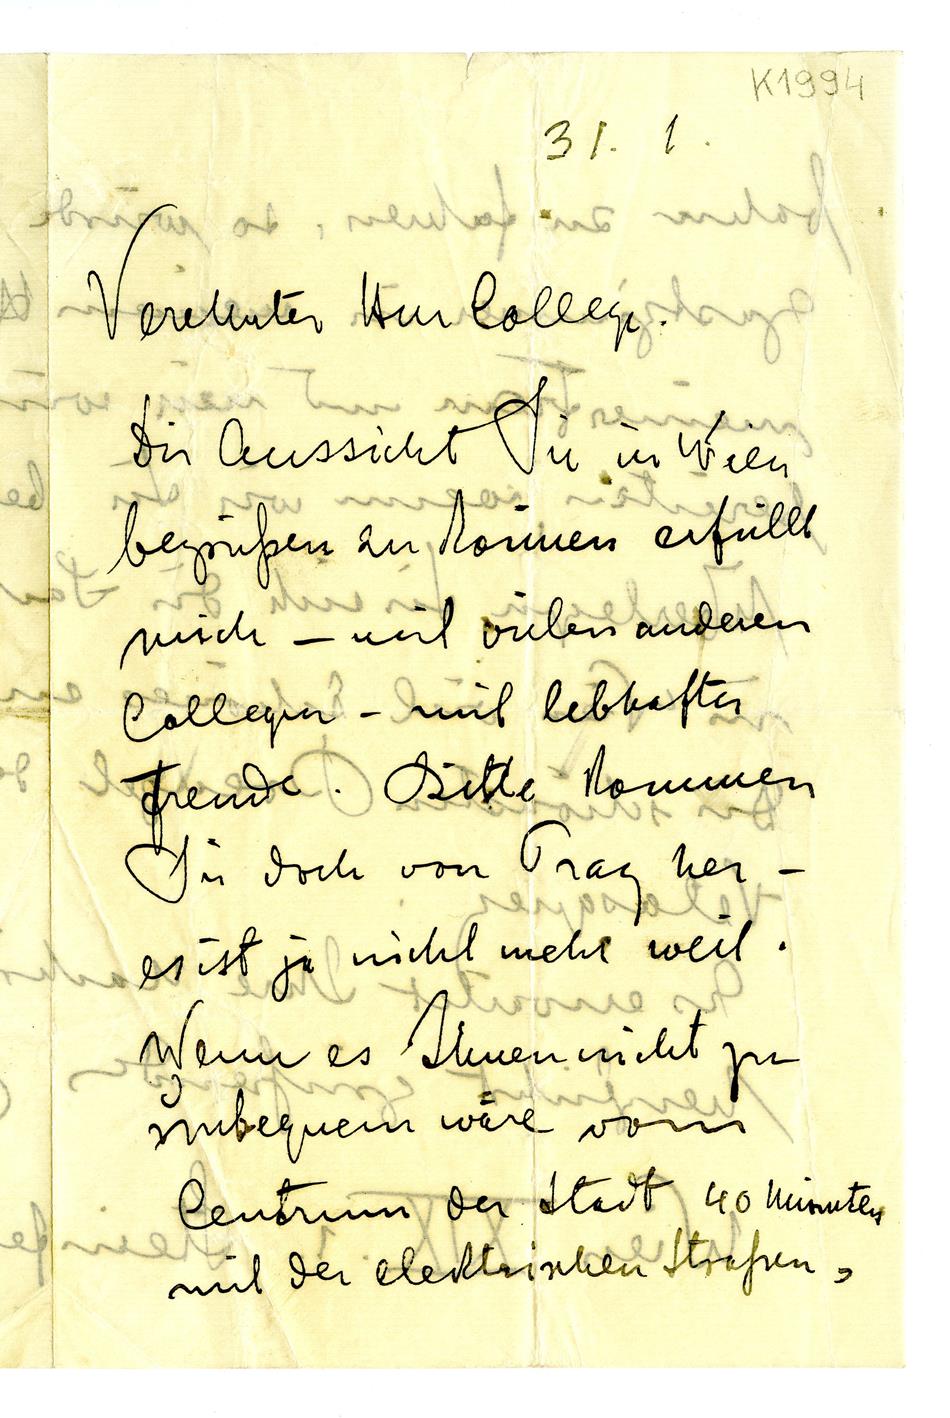 K1994
31. 1.
Verehrter Herr College.
Die Aussicht Sie in Wien
begrüßen zu können erfüllt
mich – mit vielen anderen
Collegen – mit lebhafter
Freude. Bitte kommen
Sie doch von Prag her –
es ist ja nicht mehr weit.
Wenn es Ihnen nicht zu
unbequem wäre vom
Centrum der Stadt 40 Minuten
mit der elektrischen Straßen=